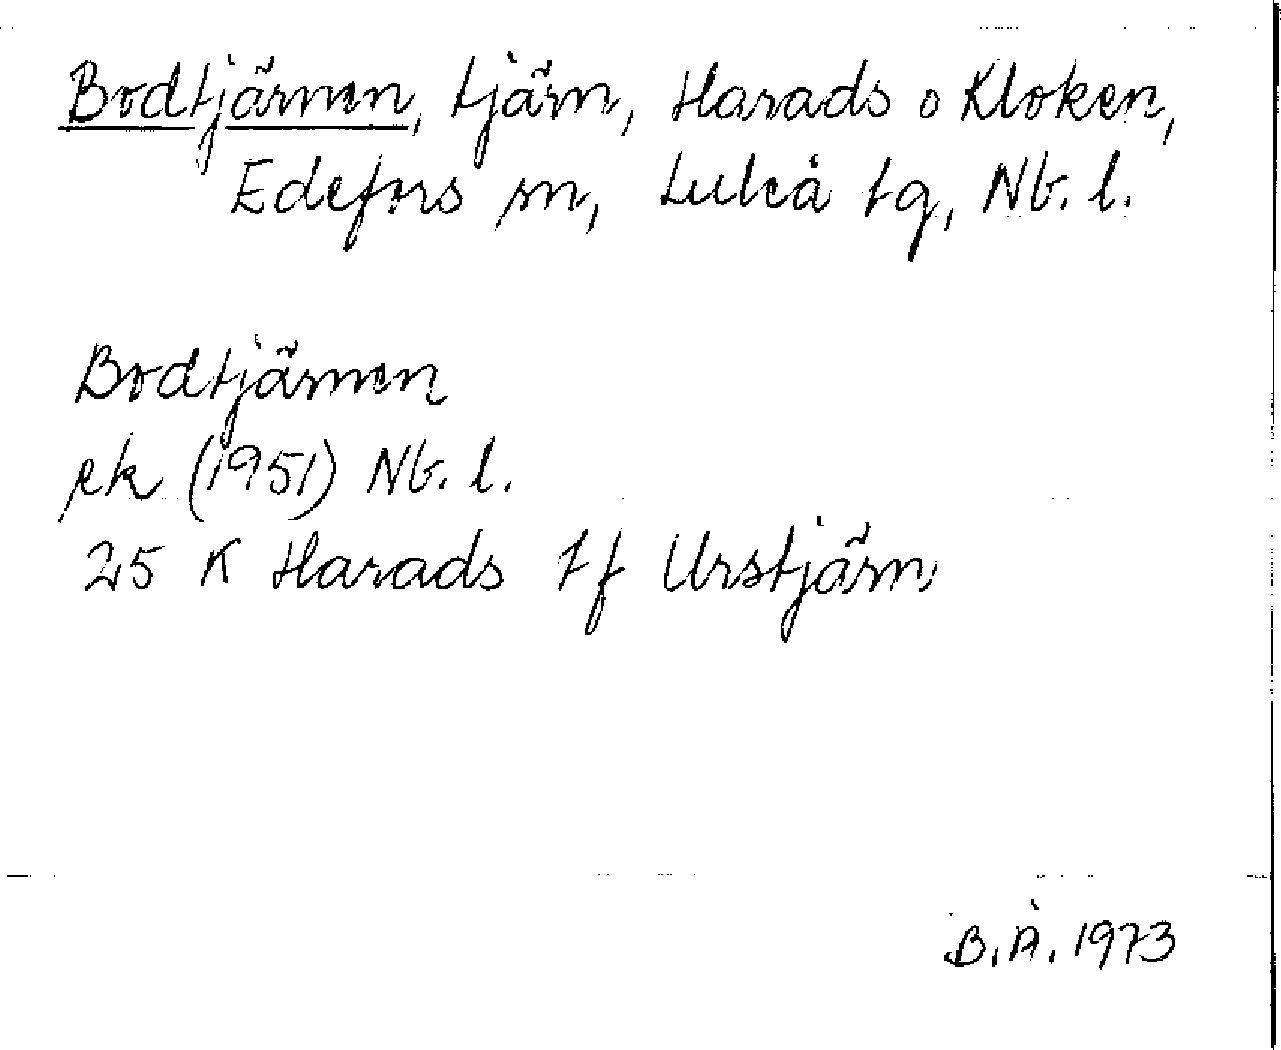 Bodtjärnen, tjärn, Harads o Kloken,
Edefors sn, Luleå tg, Nb. l.
Bodtjärnen
ek (1951) Nb. l.
25 K Harads tf Urstjärn
B.Å. 1973